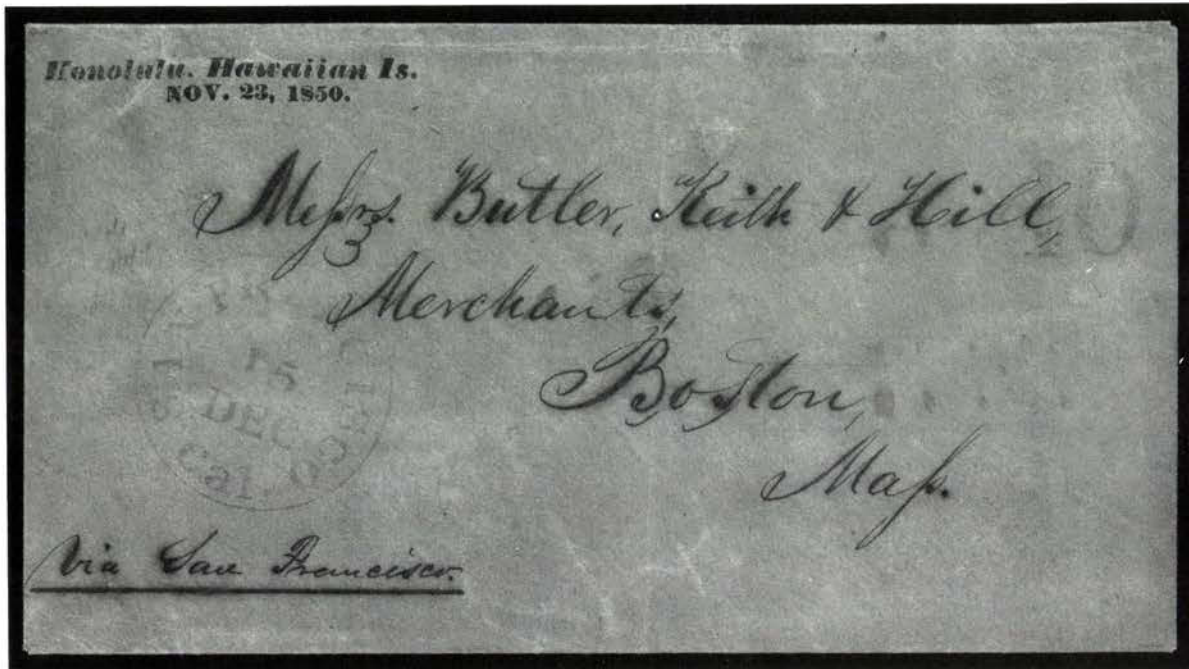 Honolulu. Hawaiian Is.
NOV. 23, 1850.
Messrs. Butler, Keith & Hill,
Merchants,
Boston,
Mass.
SAN FRANCISCO Cal.
15
DEC
Via San Francisco.